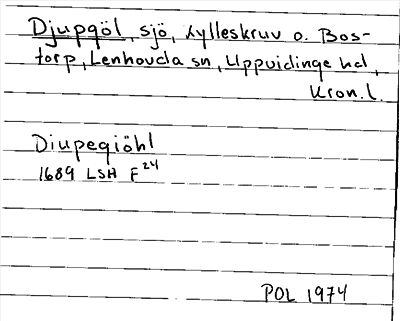 Djupgöl, sjö, Kylleskruv o. Bos-
torp, Lenhovda sn, Uppvidinge hd,
Kron. l.
Diupegiöhl
1689 LSH F24
POL 1974